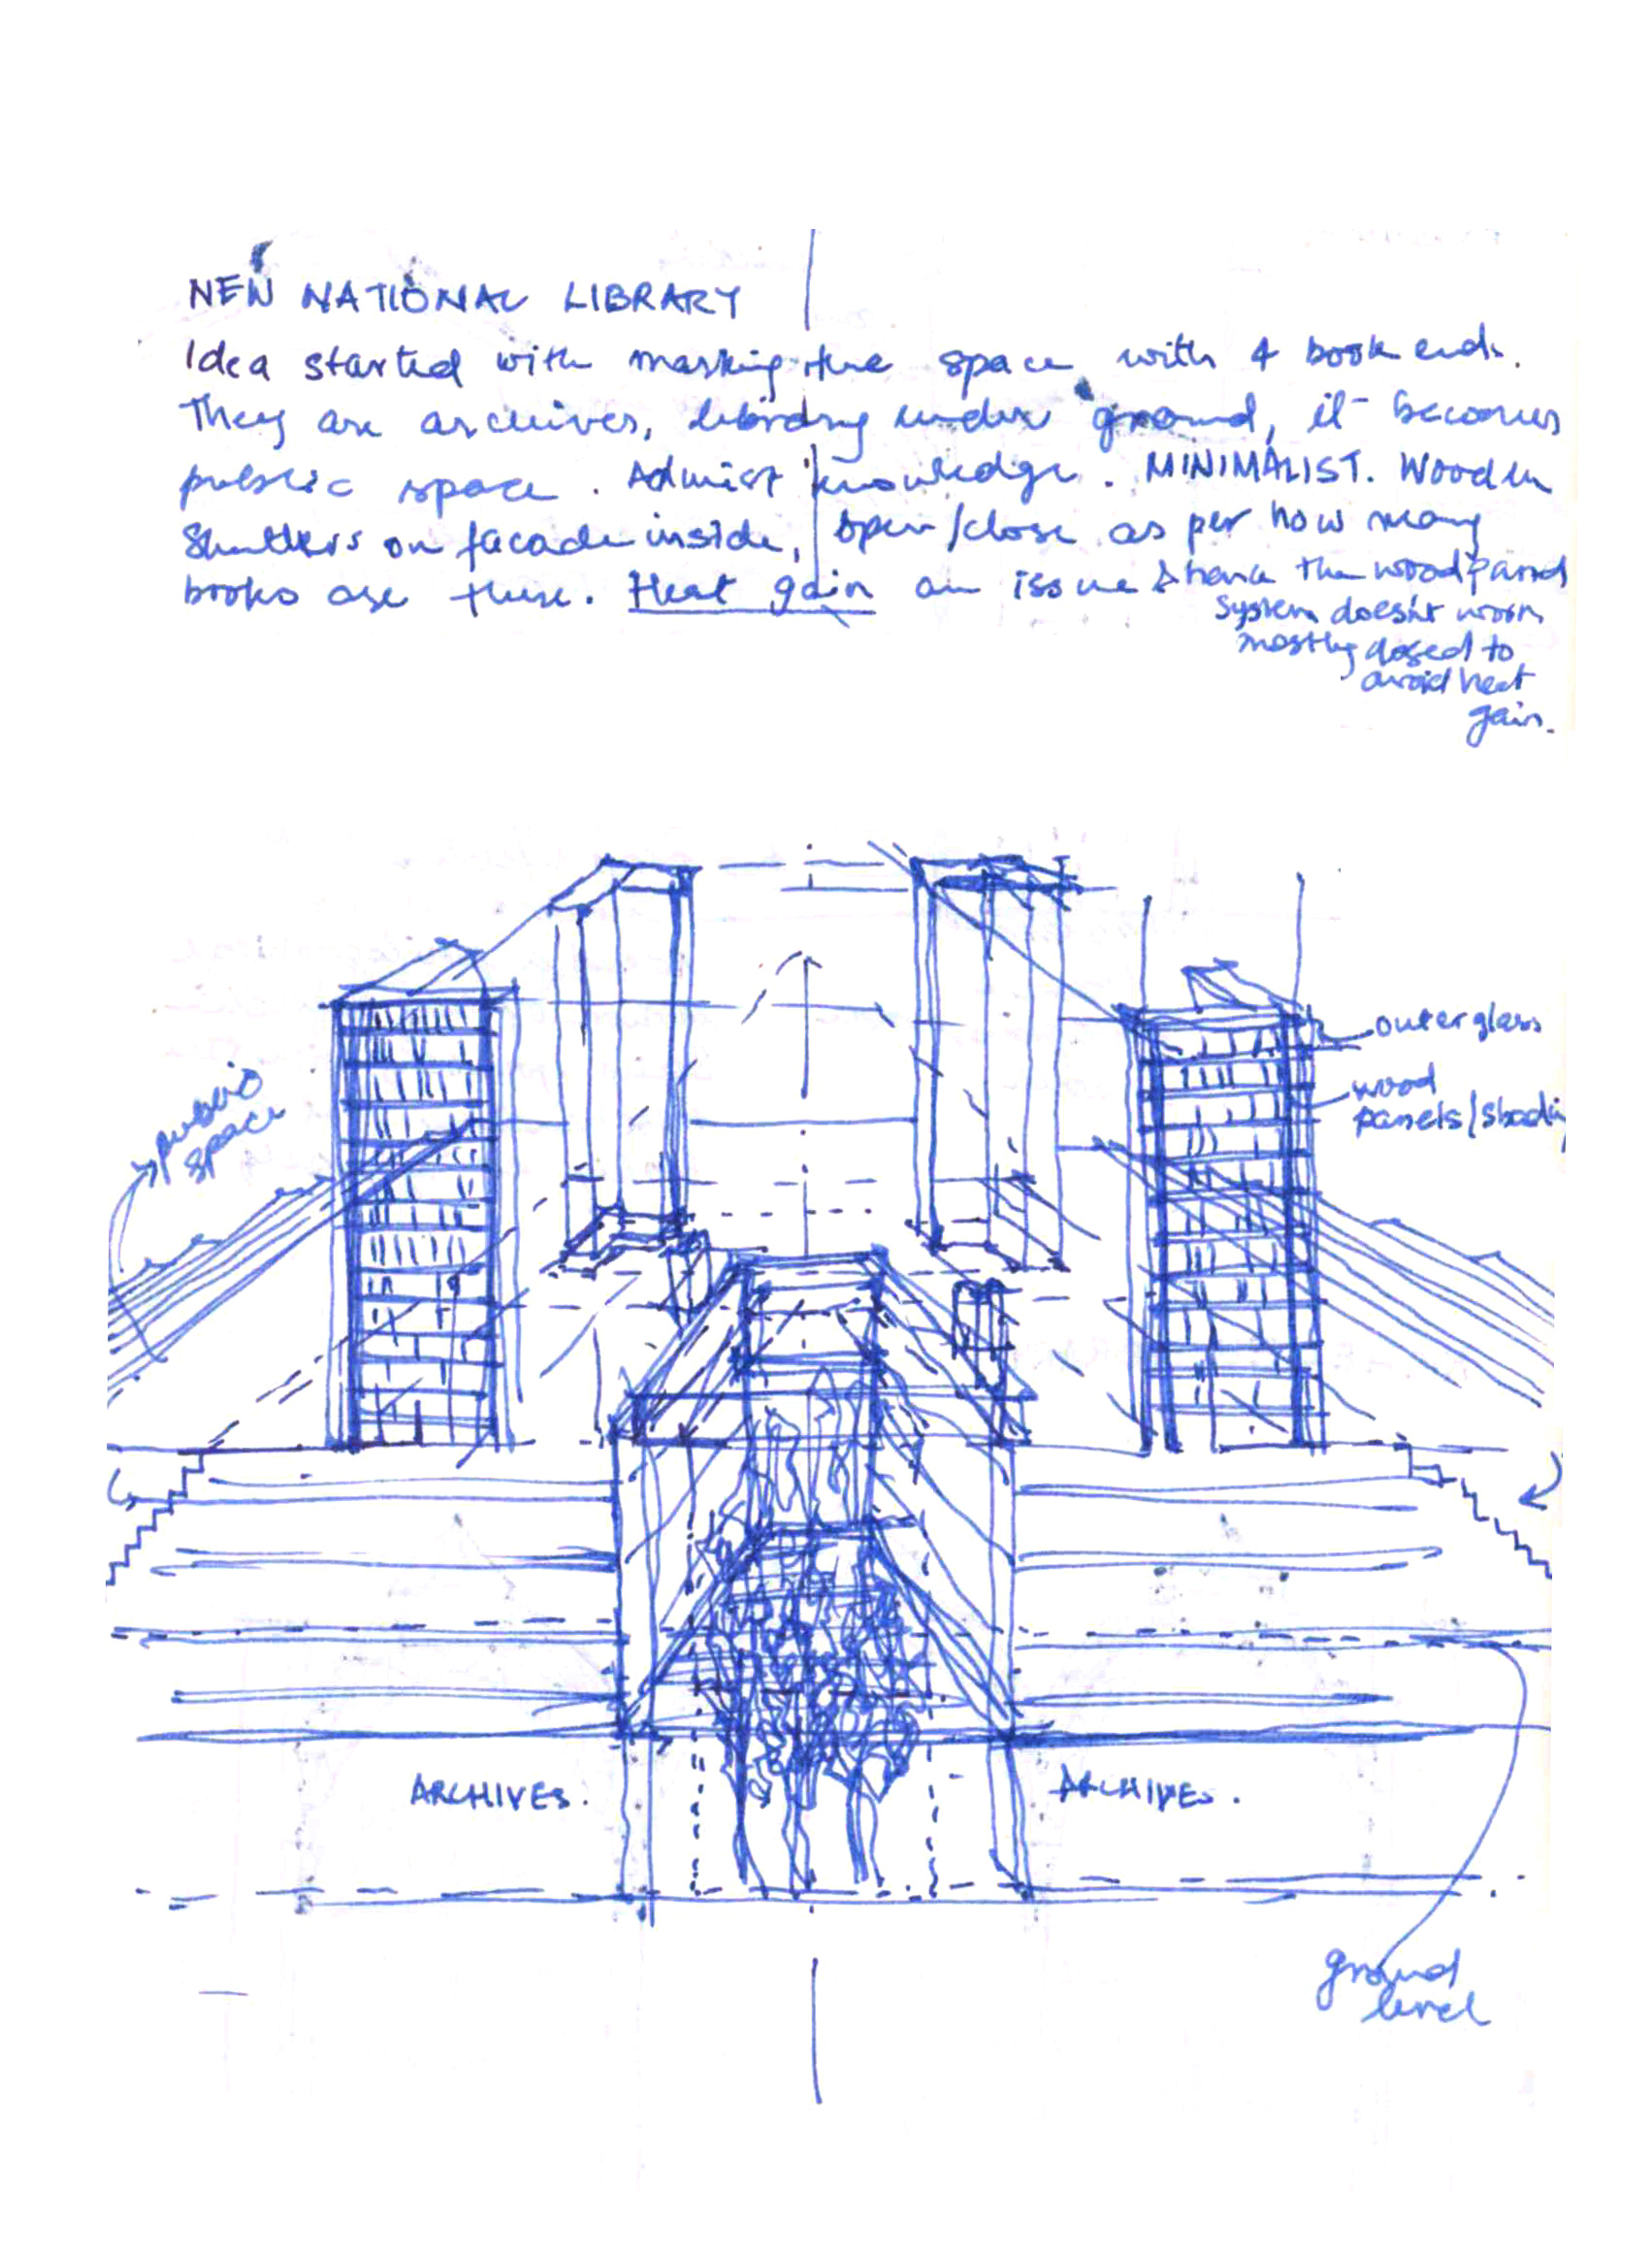 NEW NATIONAL LIBRARY
Idea started with marking the space with 4 book ends.
They are archives, library under ground, it becomes
public space. Admist knowledge. MINIMALIST. Wooden
Shutters on facade inside, open/close as per how many
books are there. Heat gain an issue & hence the wood panel
system doesn't work
mostly closed to
avoid heat
gain.
outer glass
wood
panels/shadin
public
space
ARCHIVES.
ARCHIVES.
ground
level